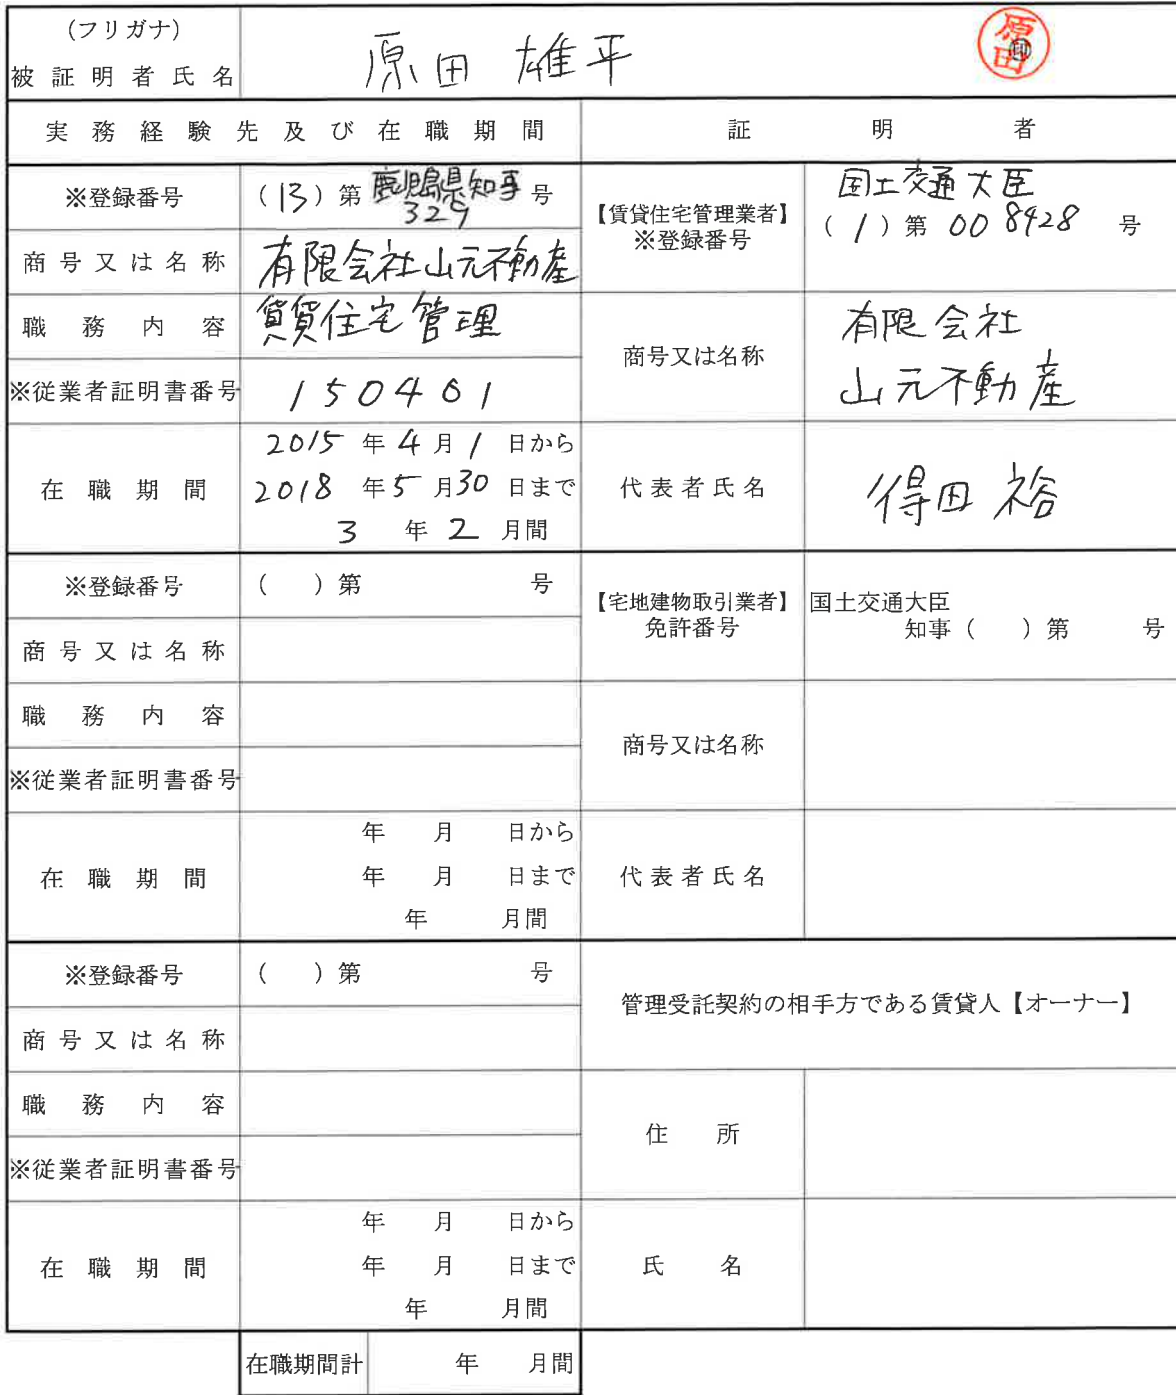 (フリガナ)
被証明者氏名 原田 雄平 原田 印
実務経験先及び在職期間 証明者
※登録番号 (13)第 鹿児島県知事 329 号
【賃貸住宅管理業者】※登録番号 国土交通大臣 (1)第 008428 号
商号又は名称 有限会社山元不動産
職務内容 賃貸住宅管理
商号又は名称 有限会社
山元不動産
※従業者証明書番号 150401
在職期間
2015年4月1日から
2018年5月30日まで
3年2月間
代表者氏名 得田 裕
※登録番号 ( )第 号
【宅地建物取引業者】免許番号 国土交通大臣
知事( )第 号
商号又は名称
職務内容
商号又は名称
※従業者証明書番号
在職期間
年 月 日から
年 月 日まで
年 月間
代表者氏名
※登録番号 ( )第 号
管理受託契約の相手方である賃貸人【オーナー】
商号又は名称
職務内容
住所
※従業者証明書番号
在職期間
年 月 日から
年 月 日まで
年 月間
氏名
在職期間計 年 月間